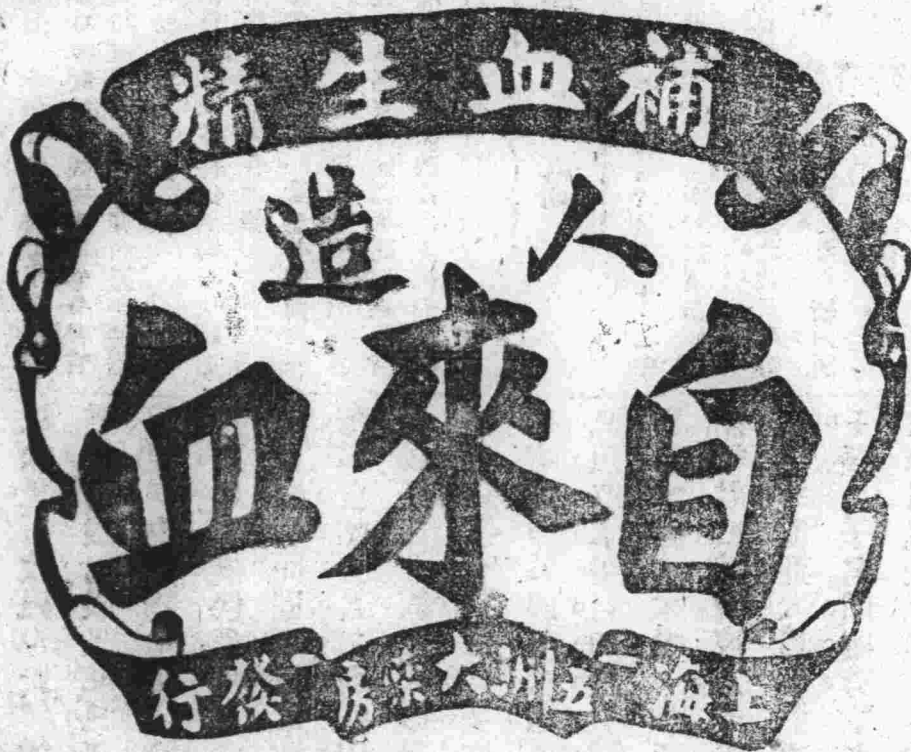 補血生精
人造
自來血
上海五洲大药房發行